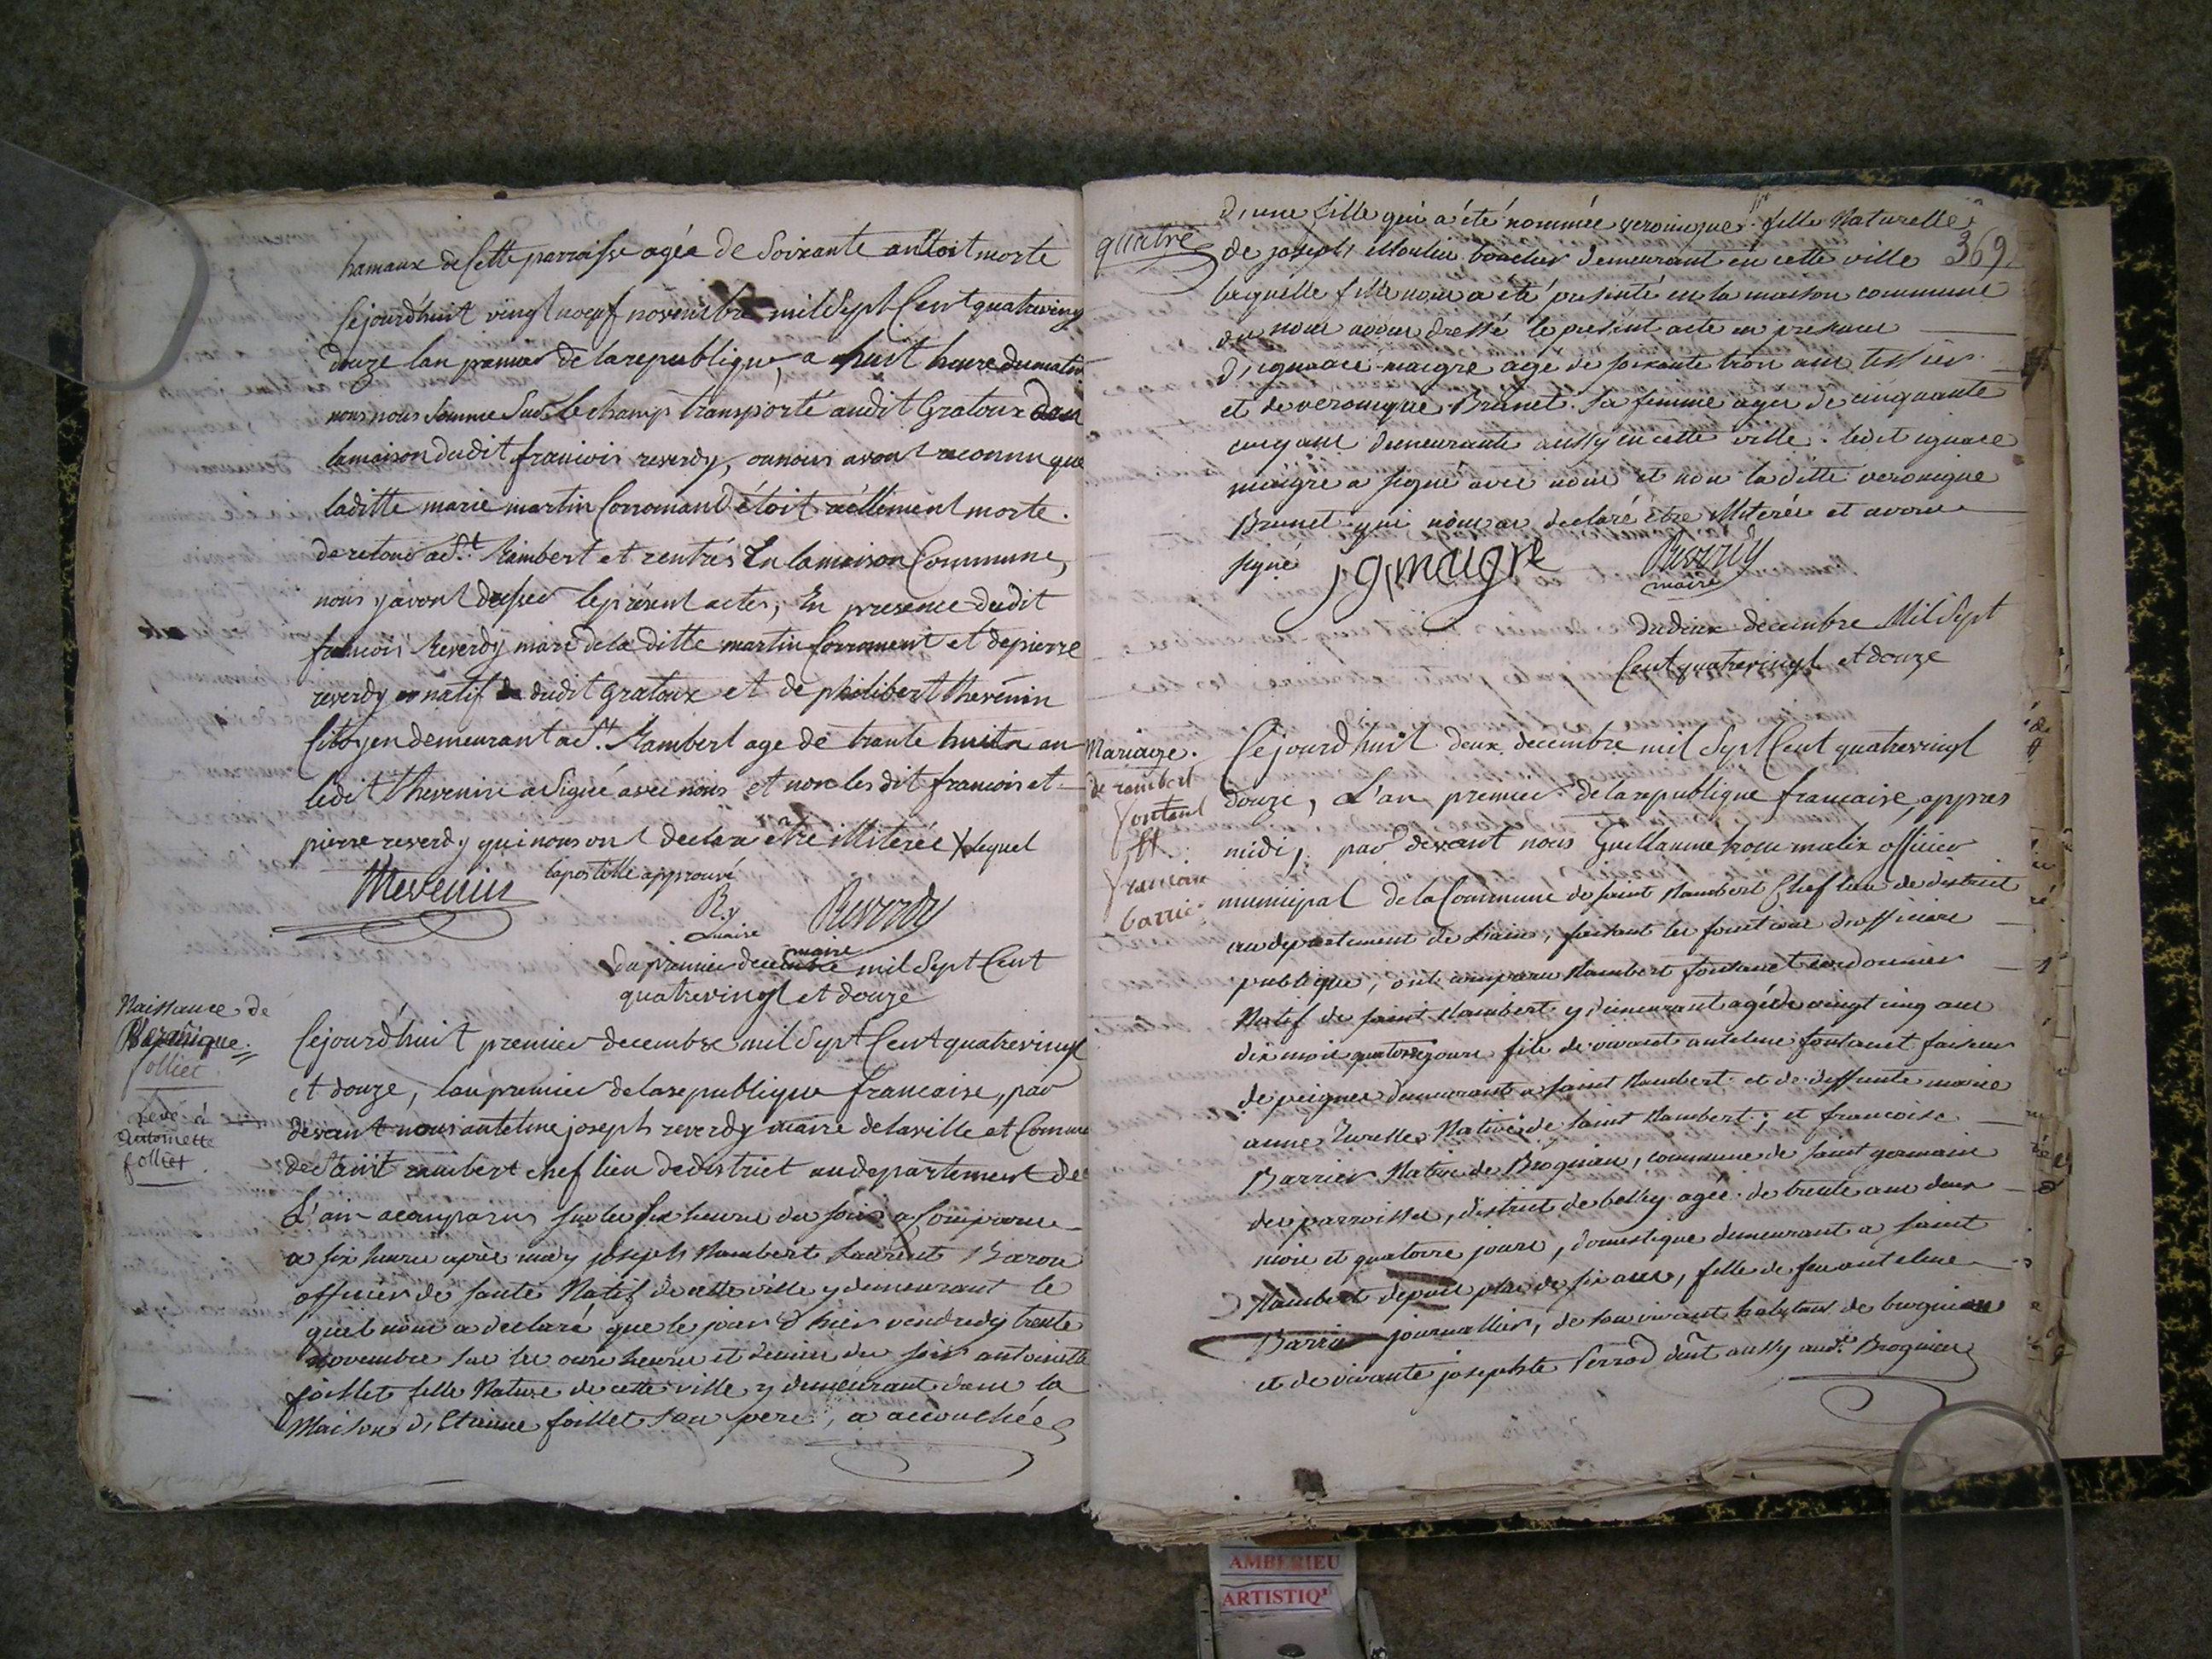 hamaux de Cette parroisse agée de Soixante ans étoit morte
Cejourd'huit vingt noeuf novembre mil Sept Cent quatreving
douze lan premier de la republique, a huit heure du matin
nous nous Somme Sur le champ transporté audit Gratoux dans
la maison dudit francois reverdy, ou nous avont reconnu que
laditte marie martin Corromand étoit réellement morte.
de retour a St. Rambert et rentrés En la maison Commune,
nous y avont dressé le présent actes, En presence dudit
francois Reverdy mari de la ditte martin Corroment et de pierre
reverdy natif dudit Gratoux et de philibert thevenin
Citoyen demeurant a St. Rambert age de trante huit an
ledit thevenin a Signé avec nous et non les dit francois et
pierre reverdy qui nous ont declaré être illiterée X lequel
lapostille approuvé
Thevenin
R.y
maire
Reverdy
maire
du premier decembre mil Sept Cent
quatrevingt et douze
Naissance de
Veronique
folliet
Levé à
Antoinette
folliet
Cejourd'huit premier decembre mil Sept Cent quatrevingt
et douze, lan premier de la republique francaise, par
devant nous anteline joseph reverdy maire de la ville et Commune
de Saint rambert chef lieu de district au departement de
L'ain acomparus sur les six heure du soir a Comparu
a six heure après midy joseph Rambert Laurent Baron
officier de santé Natif de cette ville y demeurant le
quel nous a declaré que le jour d'hier vendredy trente
novembre sur les onze heure et demie du soir antoinette
folliet fille Native de cette ville y demeurant dans la
Maison d'Etienne folliet son pere, a accouchée
quatre
369
d'une fille qui a été nommée veronique fille Naturelle
de joseph Moulin boucher demeurant en cette ville
laquelle fille nous a été présenté en la maison commune
nous avons dressé le présent acte en presence
d'ignace maigre age de soixante trois ans tissier
et de veronique Brunet sa femme agée de cinquante
cinq ans demeurants aussy en cette ville. ledit ignace
maigre a signé avec nous et non la ditte veronique
Brunet qui nous a declaré être illiterée et avons
signé
j g maigre
Reverdy
maire
du deux decembre Mil Sept
Cent quatrevingt et douze
Mariage
de rambert
fontanet
et
francoise
barrier
Cejourd'huit deux decembre mil Sept Cent quatrevingt
douze, L'an premier de la republique francaise, appres
midi, par devant nous Guillaume officier
municipal de la Commune de saint Rambert Chef lieu de district
au departement de Lain, faisant les fonctions d'officier
publique, ont comparu Rambert fontanet cordonnier
Natif de saint Rambert y demeurant agé de vingt cinq ans
dix mois quatorze jours fils de vivant anteline fontanet faiseur
de peignes demeurant a saint Rambert et de deffunte marie
anne Native de saint Rambert; et francoise
Barrier Native de Brognieu, commune de saint germain
des parroisses, district de belley agée de trente ans deux
mois et quatorze jours, domestique demeurant a saint
Rambert depuis plus de six ans, fille de feu anteline
Barrier journallier, de son vivant habitant de
et de vivante josephte Perrod dud.t Brognieu
AMBERIEU
ARTISTIQ'